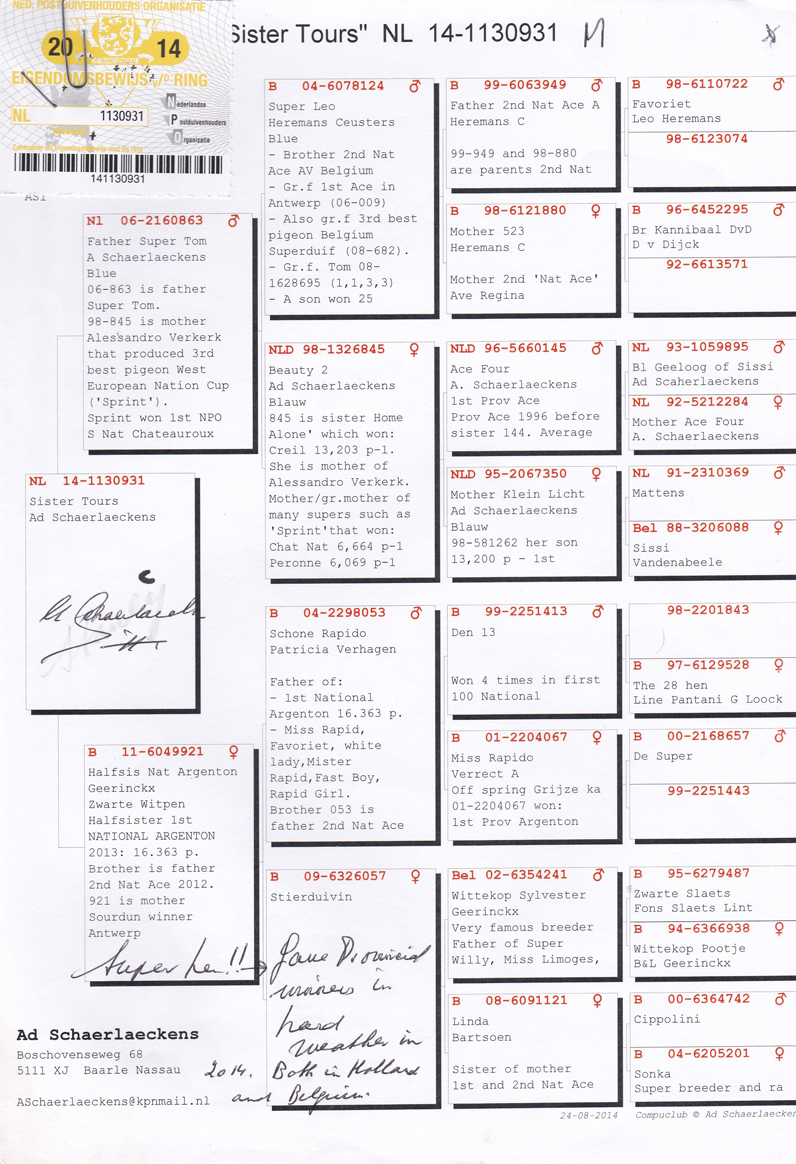 NED. POSTDUIVENHOUDERS ORGANISATIE
20 14
EIGENDOMSBEWIJS v/d RING
NL 1130931
Nederlandse
Postduivenhouders
Organisatie
141130931
Sister Tours" NL 14-1130931 M
AS1
Nl 06-2160863 ♂
Father Super Tom
A Schaerlaeckens
Blue
06-863 is father
Super Tom.
98-845 is mother
Alessandro Verkerk
that produced 3rd
best pigeon West
European Nation Cup
('Sprint').
Sprint won 1st NPO
S Nat Chateauroux
NL 14-1130931
Sister Tours
Ad Schaerlaeckens
B 11-6049921 ♀
Halfsis Nat Argenton
Geerinckx
Zwarte Witpen
Halfsister 1st
NATIONAL ARGENTON
2013: 16.363 p.
Brother is father
2nd Nat Ace 2012.
921 is mother
Sourdun winner
Antwerp
Super hen!!
B 04-6078124 ♂
Super Leo
Heremans Ceusters
Blue
- Brother 2nd Nat
Ace AV Belgium
- Gr.f 1st Ace in
Antwerp (06-009)
- Also gr.f 3rd best
pigeon Belgium
Superduif (08-682).
- Gr.f. Tom 08-
1628695 (1,1,3,3)
- A son won 25
NLD 98-1326845 ♀
Beauty 2
Ad Schaerlaeckens
Blauw
845 is sister Home
Alone' which won:
Creil 13,203 p-1.
She is mother of
Alessandro Verkerk.
Mother/gr.mother of
many supers such as
'Sprint'that won:
Chat Nat 6,664 p-1
Peronne 6,069 p-1
B 04-2298053 ♂
Schone Rapido
Patricia Verhagen
Father of:
- 1st National
Argenton 16.363 p.
- Miss Rapid,
Favoriet, white
lady,Mister
Rapid,Fast Boy,
Rapid Girl.
Brother 053 is
father 2nd Nat Ace
B 09-6326057 ♀
Stierduivin
Gave Provincial
winners in
hard
weather in
2014. Both in Holland
and Belgium.
B 99-6063949 ♂
Father 2nd Nat Ace A
Heremans C
99-949 and 98-880
are parents 2nd Nat
B 98-6121880 ♀
Mother 523
Heremans C
Mother 2nd 'Nat Ace'
Ave Regina
NLD 96-5660145 ♂
Ace Four
A. Schaerlaeckens
1st Prov Ace
Prov Ace 1996 before
sister 144. Average
NLD 95-2067350 ♀
Mother Klein Licht
Ad Schaerlaeckens
Blauw
98-581262 her son
13,200 p - 1st
B 99-2251413 ♂
Den 13
Won 4 times in first
100 National
B 01-2204067 ♀
Miss Rapido
Verrect A
Off spring Grijze ka
01-2204067 won:
1st Prov Argenton
Bel 02-6354241 ♂
Wittekop Sylvester
Geerinckx
Very famous breeder
Father of Super
Willy, Miss Limoges,
B 08-6091121 ♀
Linda
Bartsoen
Sister of mother
1st and 2nd Nat Ace
B 98-6110722 ♂
Favoriet
Leo Heremans
98-6123074
B 96-6452295 ♂
Br Kannibaal DvD
D v Dijck
92-6613571
NL 93-1059895 ♂
Bl Geeloog of Sissi
Ad Scaherlaeckens
NL 92-5212284 ♀
Mother Ace Four
A. Schaerlaeckens
NL 91-2310369 ♂
Mattens
Bel 88-3206088 ♀
Sissi
Vandenabeele
98-2201843
B 97-6129528 ♀
The 28 hen
Line Pantani G Loock
B 00-2168657 ♂
De Super
99-2251443
B 95-6279487
Zwarte Slaets
Fons Slaets Lint
B 94-6366938 ♀
Wittekop Pootje
B&L Geerinckx
B 00-6364742 ♂
Cippolini
B 04-6205201 ♀
Sonka
Super breeder and ra
Ad Schaerlaeckens
Boschovenseweg 68
5111 XJ Baarle Nassau
ASchaerlaeckens@kpnmail.nl
24-08-2014 Compuclub © Ad Schaerlaecken